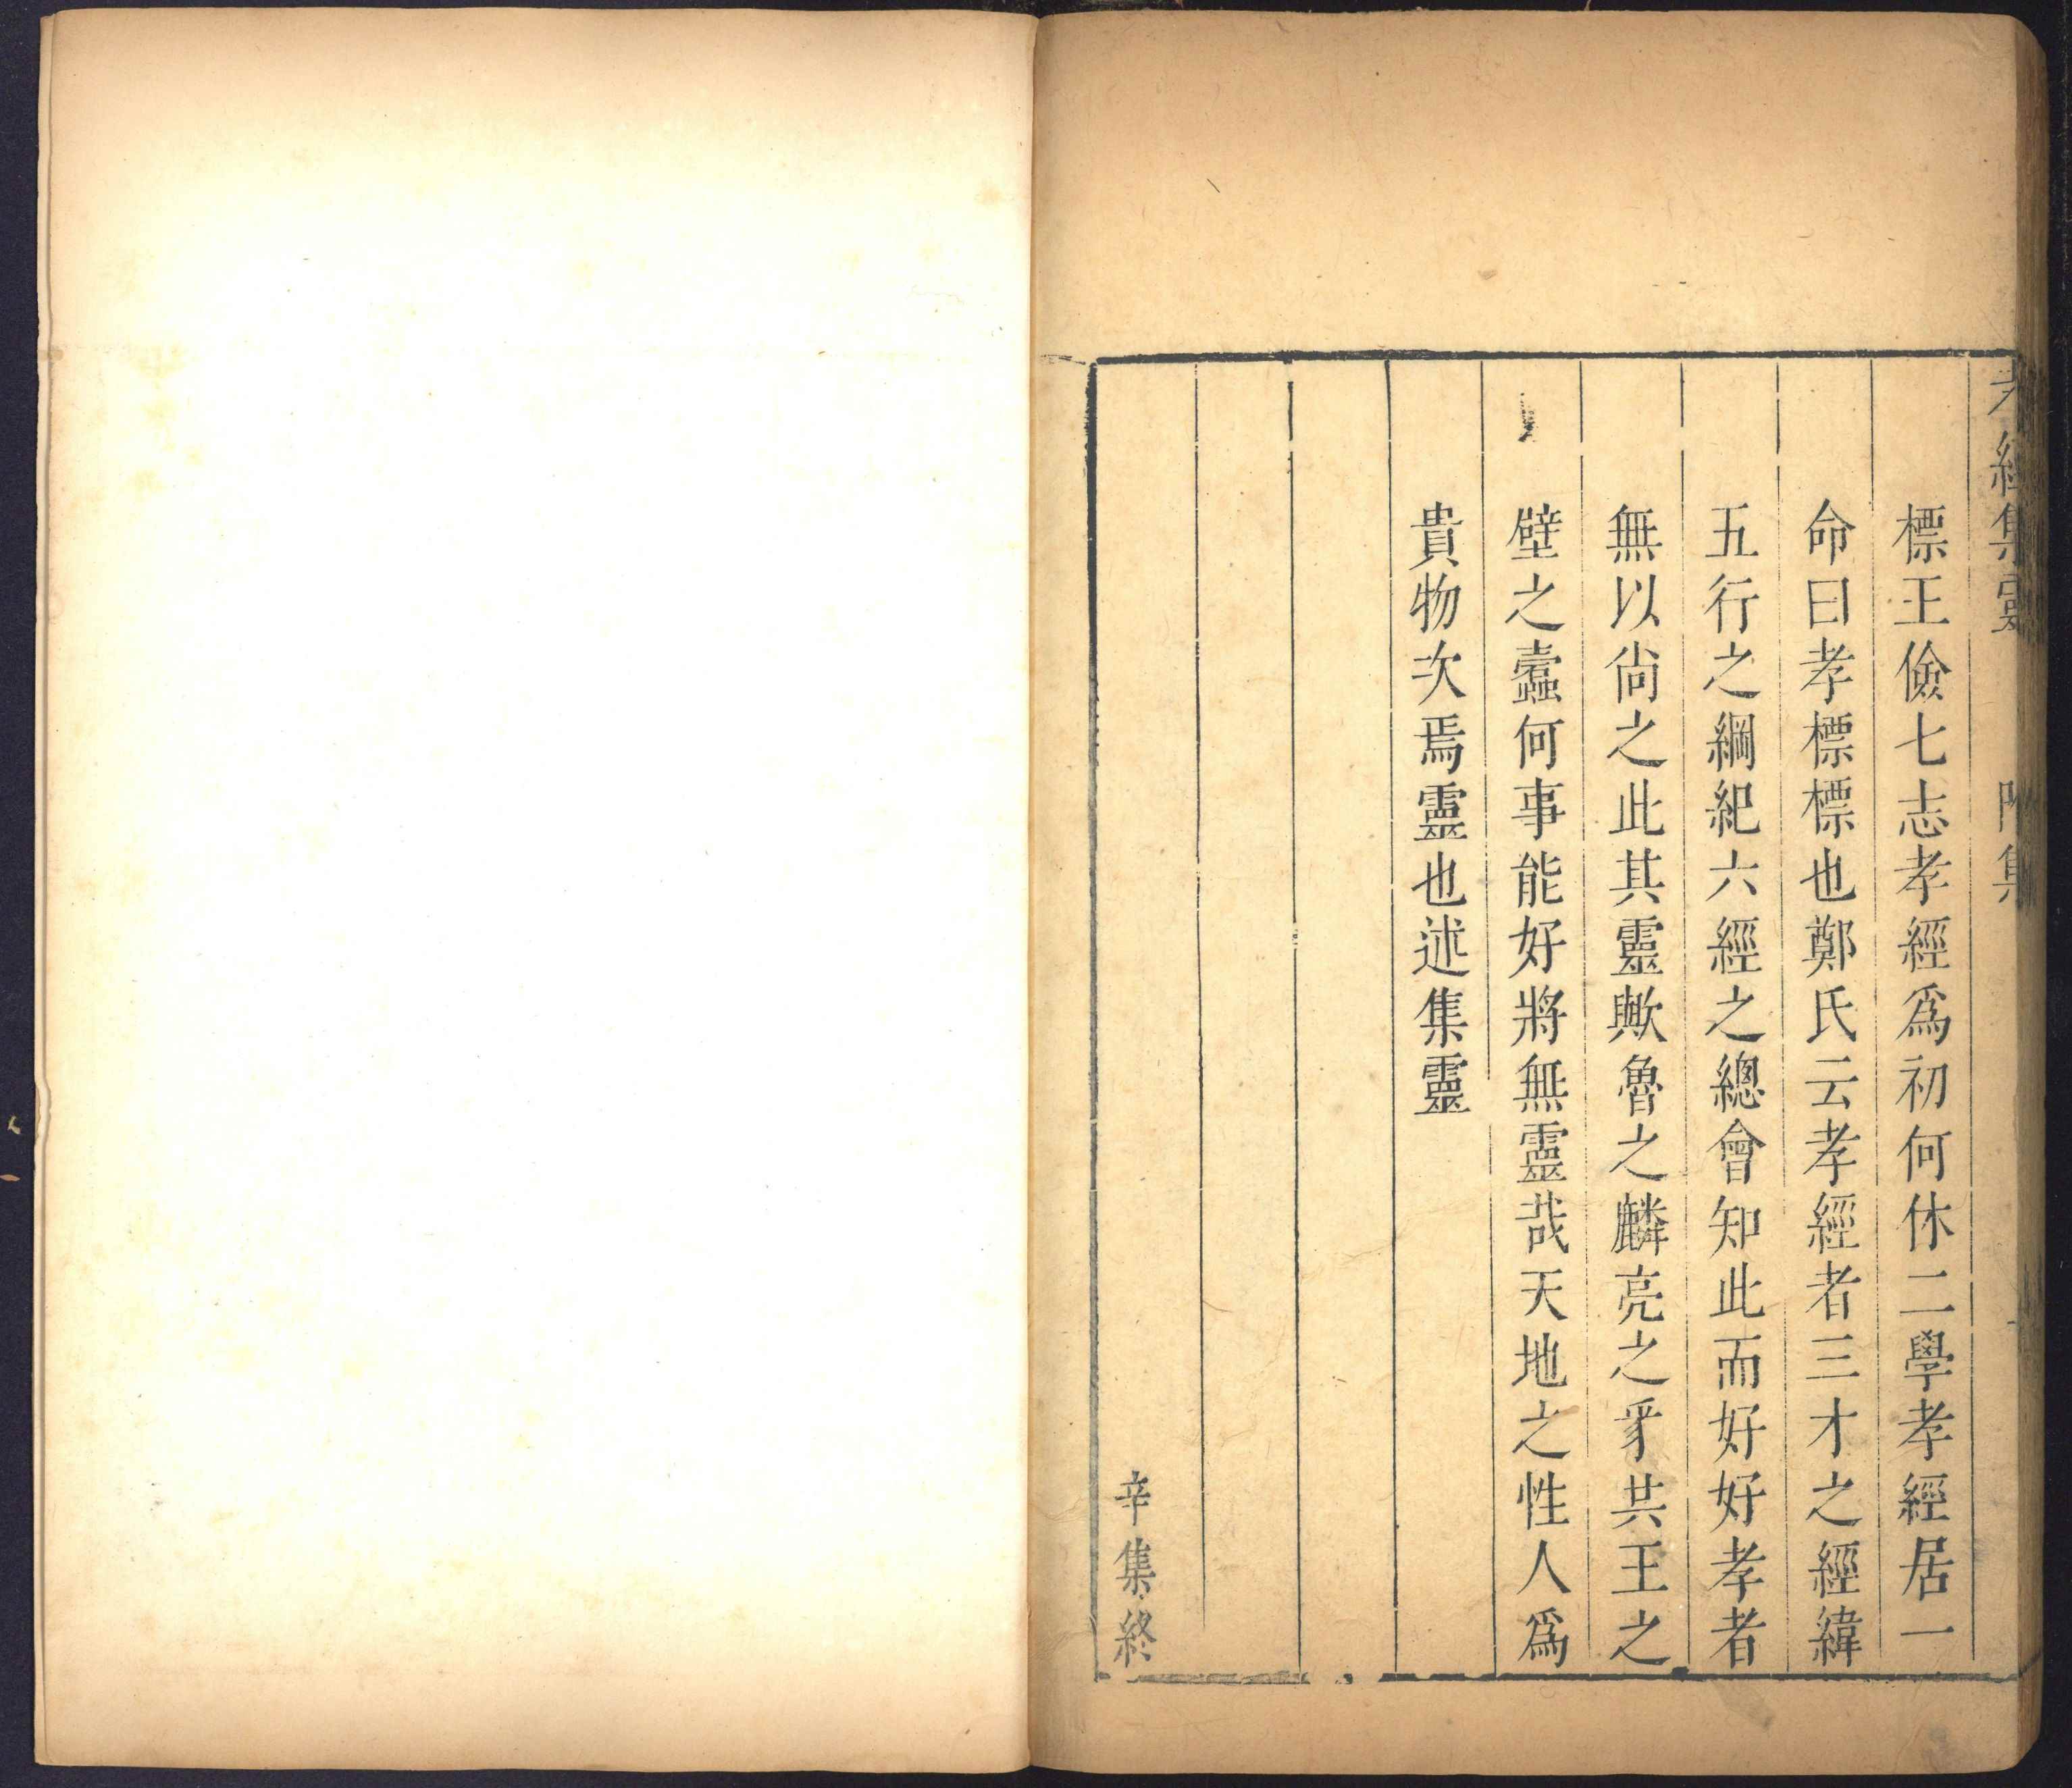 經集靈 附集
標王儉七志孝經爲初何休二學孝經居一
命曰孝標標也鄭氏云孝經者三才之經緯
五行之綱紀六經之總會知此而好好孝者
無以尚之此其靈歟魯之麟亮之豸共王之
壁之蠹何事能好將無靈哉天地之性人爲
貴物次焉靈也述集靈
辛集終